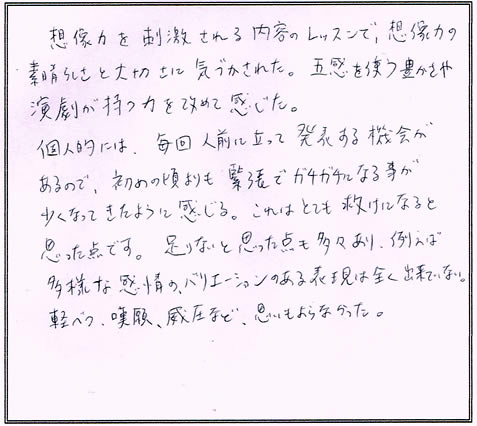 想像力を刺激される内容のレッスンで、想像力の
素晴らしさと大切さに気づかされた。五感を使う豊かさや
演劇が持つ力を改めて感じた。
個人的には、毎回人前に立って発表する機会が
あるので、初めの頃よりも緊張でガチガチになる事が
少くなってきたように感じる。これはとても救けになると
思った点です。足りないと思った点も多々あり、例えば
多様な感情の、バリエーションのある表現は全く出来ていない。
軽べつ、嘆願、威圧など、思いもよらなかった。